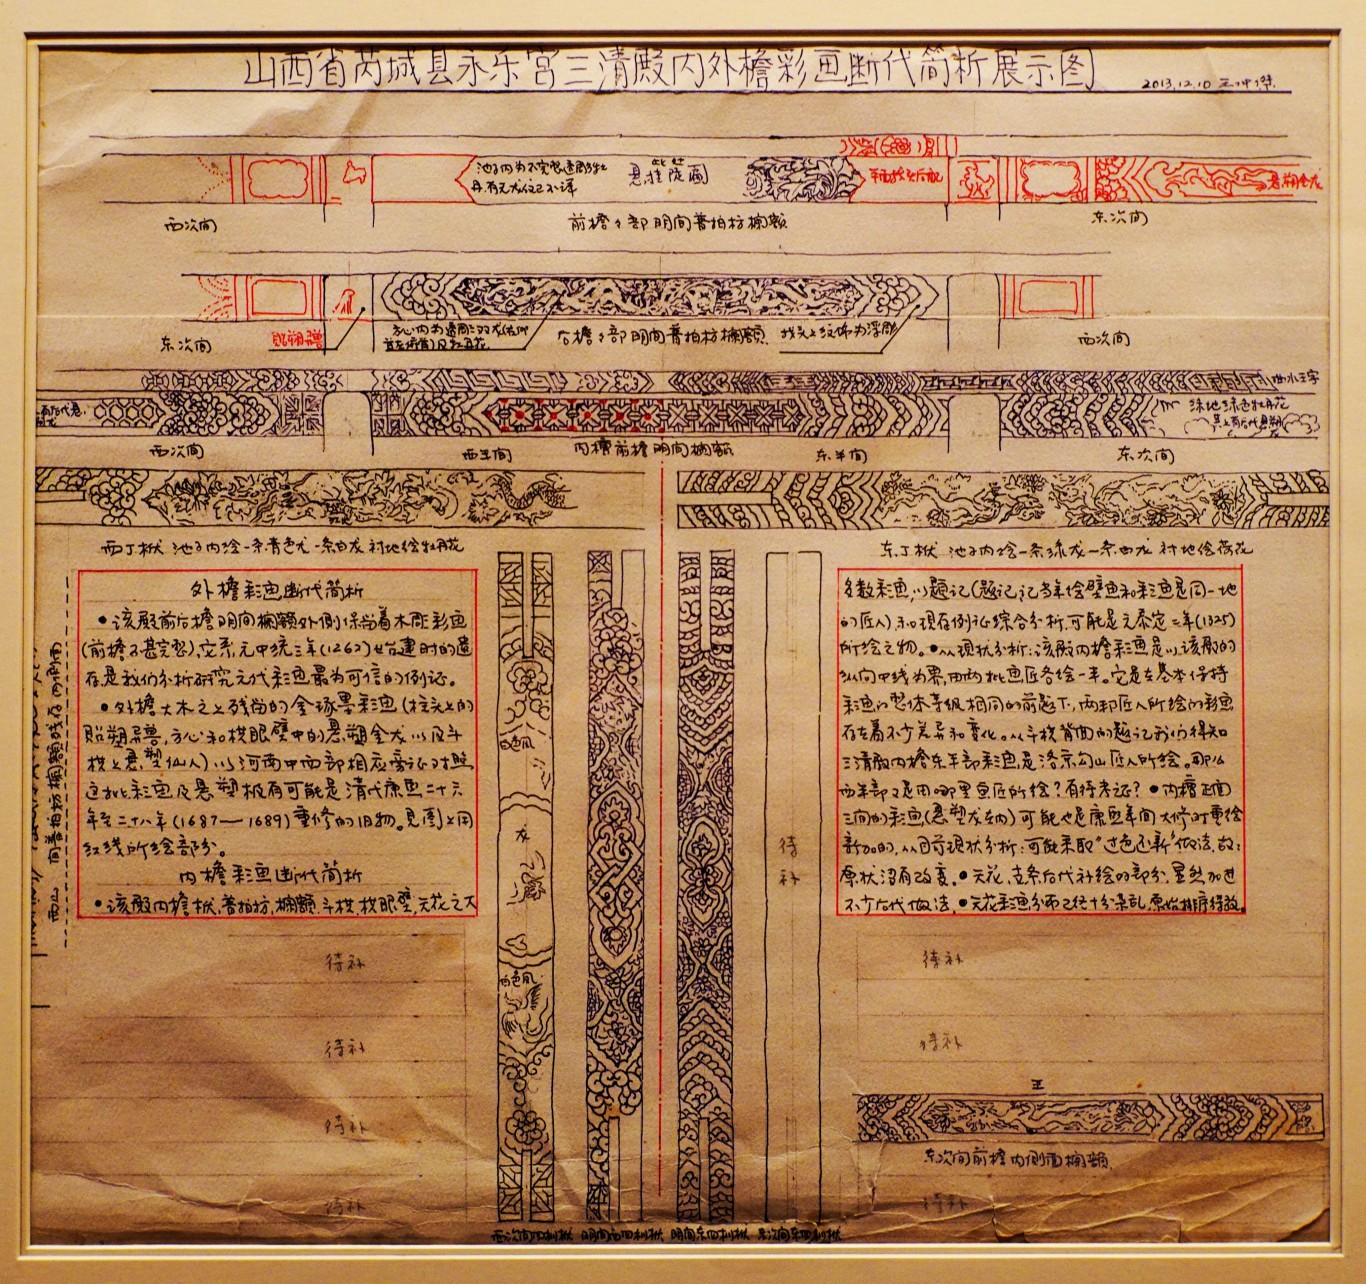 山西省芮城县永乐宫三清殿内外檐彩画断代简析展示图
2013.12.10 王仲傑
池子内为不完整透雕牡
丹,有无龙位已不详
悬挂陇匾
悬塑金龙
西次间
前檐下部明间普拍枋栏额
东次间
东次间
贴塑兽
方心内为透雕二双龙
及牡丹花
后檐下部明间普拍枋栏额
找头上纹饰为浮雕
西次间
西次间
西半间
内檐前檐明间栏额
东半间
东次间
绿地绿色牡丹花
其上有后代悬塑
西丁栿 池子内绘一条青色龙一条白龙 衬地绘牡丹花
东丁栿 池子内绘一条绿龙一条白龙 衬地绘荷花
外檐彩画断代简析
•该殿前后檐明间栏额外侧保尚着木雕彩画
(前檐不甚完整),它系元中统三年(1262)始建时的遗
存,是我们分析研究元代彩画最为可信的例证。
•外檐大木之上残尚的金琢墨彩画(柱头上的
贴塑异兽,方心和栱眼壁中的悬塑金龙以及斗
栱上悬塑仙人)以河南中西部相应旁证对照
这批彩画及悬塑极有可能是清代康熙二十六
年至二十八年(1687—1689)重修的旧物。见图上用
红线所绘部分。
内檐彩画断代简析
•该殿内檐栿、普拍枋、栏额、斗栱、栱眼壁、天花之大
多数彩画,以题记(题记记当年绘壁画和彩画是同一地
的匠人)和现存例证综合分析,可能是元泰定二年(1325)
所绘之物。•从现状分析:该殿内檐彩画是以该殿的
纵向中线为界,由两批画匠各绘一半。它是在基本保持
彩画的整体等级相同的前题下,两部匠人所绘的彩画
存在着不少差异和变化。从斗栱背面的题记我们得知
三清殿内檐东半部彩画,是洛京勾山匠人所绘。那么
西半部又是由哪里画匠所绘?有待考证?•内檐正面
三间的彩画(悬塑龙在内)可能也是康熙年间大修时重绘
新加的,从目前现状分析:可能采取"过色还新"做法,故:
原状没有改变。•天花、支条后代补绘的部分,显然加进
不少后代做法,•天花彩画分布已经十分杂乱,原始排序待考。
龙
白色凤
待补
待补
待补
待补
待补
待补
待补
待补
待补
东次间前檐内侧面栏额
西次间西四椽栿 明间西四椽栿 明间东四椽栿 东次间东四椽栿